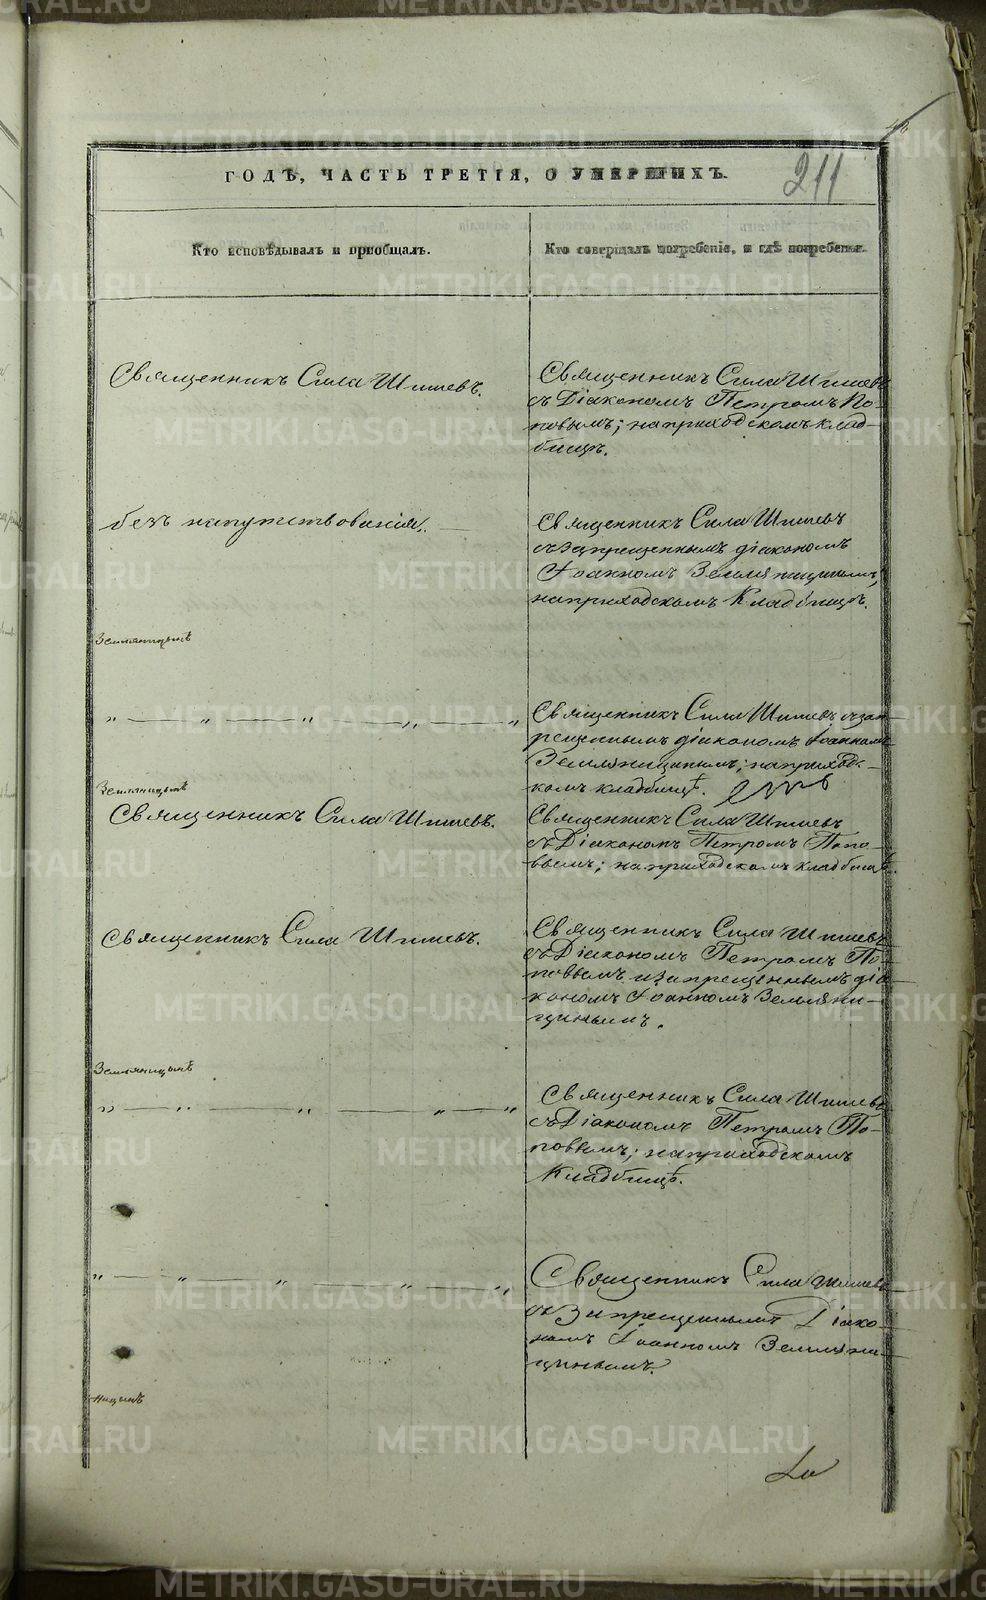 METRIKI.GASO-URAL.RU
211
ГОДѢ, ЧАСТЬ ТРЕТІЯ, О УМЕРШИХЪ.
Кто исповѣдывалъ и пріобщалъ.
Кто совершалъ погребеніе, и гдѣ погребены.
Священникъ Сила Шишевъ.
Священникъ Сила Шишевъ
съ Діакономъ Петромъ По-
повымъ; на приходскомъ клад-
бищѣ.
безъ напутствованія.
Священникъ Сила Шишевъ
съ запрещеннымъ діакономъ
Іоанномъ Земляницынымъ,
на приходскомъ Кладбищѣ.
Земляницынъ
" — " — " — " — "
Священникъ Сила Шишевъ съ зап-
рещеннымъ діакономъ Іоанномъ
Земляницынымъ; на приходс-
комъ кладбищѣ.
Земляницынъ
Священникъ Сила Шишевъ.
Священникъ Сила Шишевъ
съ Діакономъ Петромъ Попо-
вымъ; на приходскомъ кладбищѣ.
Священникъ Сила Шишевъ.
Священникъ Сила Шишевъ
съ Діакономъ Петромъ По-
повымъ и запрещеннымъ діа-
кономъ Іоанномъ Земляни-
цынымъ.
Земляницынъ
" — " — " — " — "
Священникъ Сила Шишевъ
съ Діакономъ Петромъ По-
повымъ; на приходскомъ
Кладбищѣ.
" — " — " — " — "
Священникъ Сила Шишевъ
съ Запрещеннымъ Діако-
номъ Іоанномъ Земляни-
цынымъ.
ницынъ